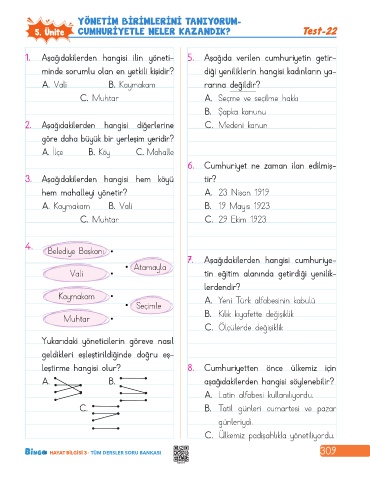 5. Ünite
YÖNETİM BİRİMLERİNİ TANIYORUM-
CUMHURİYETLE NELER KAZANDIK?
Test-22
1. Aşağıdakilerden hangisi ilin yöneti-
minde sorumlu olan en yetkili kişidir?
A. Vali B. Kaymakam
C. Muhtar
2. Aşağıdakilerden hangisi diğerlerine
göre daha büyük bir yerleşim yeridir?
A. İlçe B. Köy C. Mahalle
3. Aşağıdakilerden hangisi hem köyü
hem mahalleyi yönetir?
A. Kaymakam B. Vali
C. Muhtar
4.
Belediye Başkanı •
• Atamayla
Vali •
Kaymakam •
• Seçimle
Muhtar •
Yukarıdaki yöneticilerin göreve nasıl
geldikleri eşleştirildiğinde doğru eş-
leştirme hangisi olur?
A. B.
C.
5. Aşağıda verilen cumhuriyetin getir-
diği yeniliklerin hangisi kadınların ya-
rarına değildir?
A. Seçme ve seçilme hakkı
B. Şapka kanunu
C. Medeni kanun
6. Cumhuriyet ne zaman ilan edilmiş-
tir?
A. 23 Nisan 1919
B. 19 Mayıs 1923
C. 29 Ekim 1923
7. Aşağıdakilerden hangisi cumhuriye-
tin eğitim alanında getirdiği yenilik-
lerdendir?
A. Yeni Türk alfabesinin kabulü
B. Kılık kıyafette değişiklik
C. Ölçülerde değişiklik
8. Cumhuriyetten önce ülkemiz için
aşağıdakilerden hangisi söylenebilir?
A. Latin alfabesi kullanılıyordu.
B. Tatil günleri cumartesi ve pazar
günleriydi.
C. Ülkemiz padişahlıkla yönetiliyordu.
BİNGO HAYAT BİLGİSİ 3 - TÜM DERSLER SORU BANKASI
309